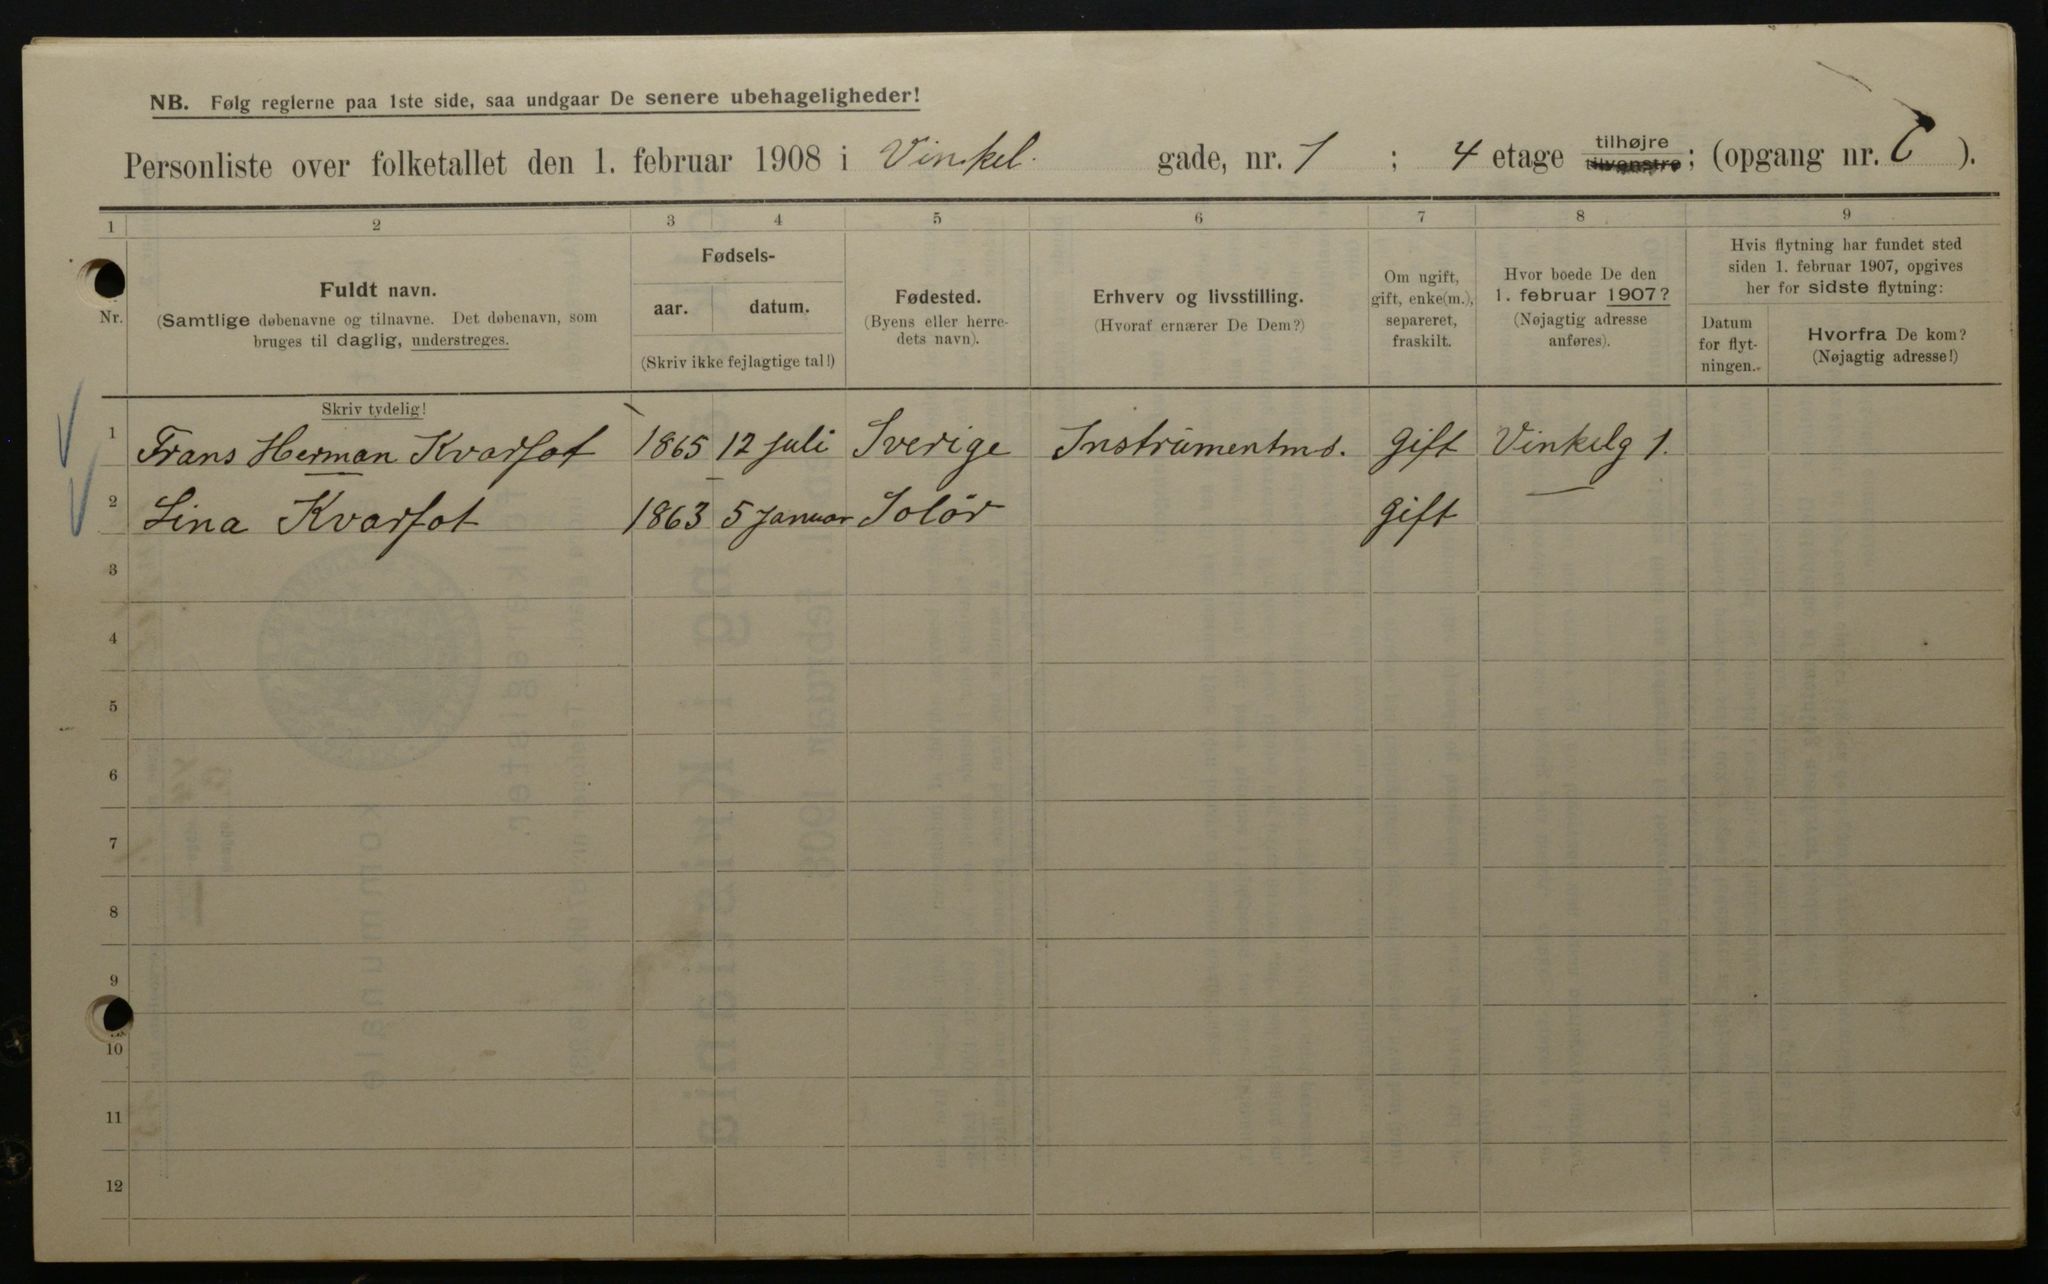 NB. Følg reglerne paa 1ste side, saa undgaar De senere ubehageligheder!
Personliste over folketallet den 1. februar 1908 i Vinkel. gade, nr. 1 ; 4 etage tilhøjre tilvenstre; (opgang nr. C ).
1 2 3 4 5 6 7 8 9
Nr.
Fuldt navn.
(Samtlige døbenavne og tilnavne. Det døbenavn, som
bruges til daglig, understreges.
Fødsels-
aar. datum.
(Skriv ikke fejlagtige tal!)
Fødested.
(Byens eller herre-
dets navn).
Erhverv og livsstilling.
(Hvoraf ernærer De Dem?)
Om ugift,
gift, enke(m.),
separeret,
fraskilt.
Hvor boede De den
1. februar 1907?
(Nøjagtig adresse
anføres).
Hvis flytning har fundet sted
siden 1. februar 1907, opgives
her for sidste flytning:
Datum
for flyt-
ningen.
Hvorfra De kom?
(Nøjagtig adresse!)
Skriv tydelig!
1 Frans Herman Kvarfot 1865 12 juli Sverige Instrumentm. gift Vinkelg 1.
2 Lina Kvarfot 1863 5 Januar Solør gift —
3
4
5
6
7
8
9
10
11
12